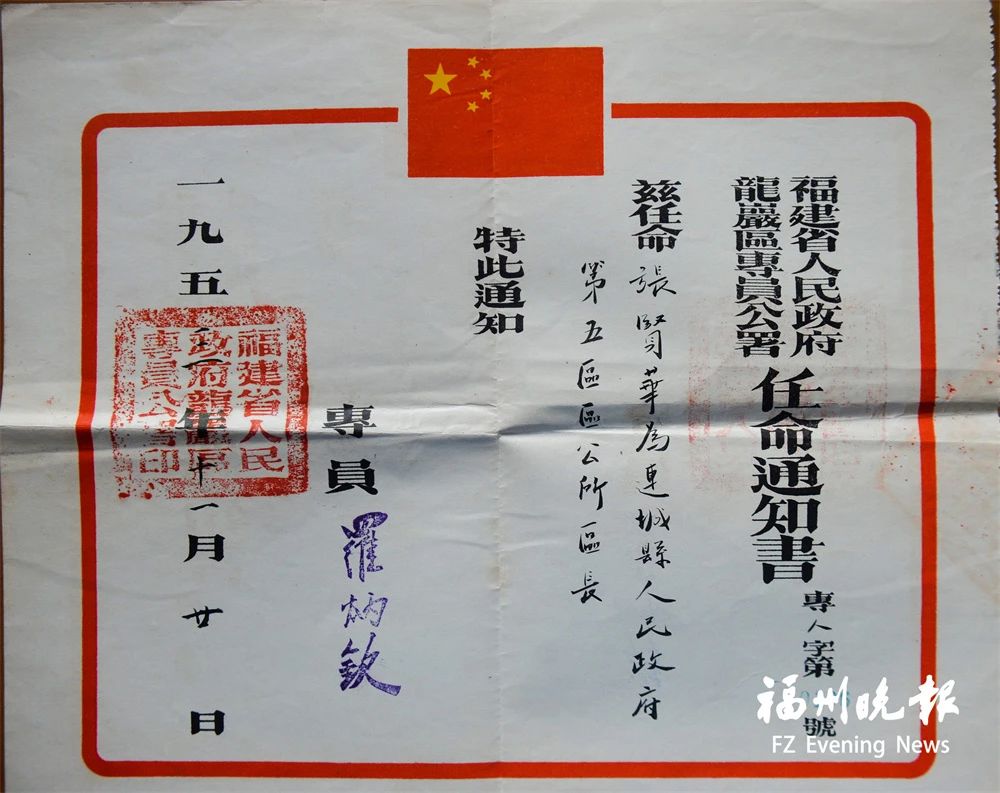 福建省人民政府
龍巖區專員公署
任命通知書
專人字第 號
茲任命張賢華為連城縣人民政府
第五區區公所區長
特此通知
專員 羅炳欽
一九五 年十一月廿日
福建省人民
政府龍巖區
專員公署印
福州晚报
FZ Evening News